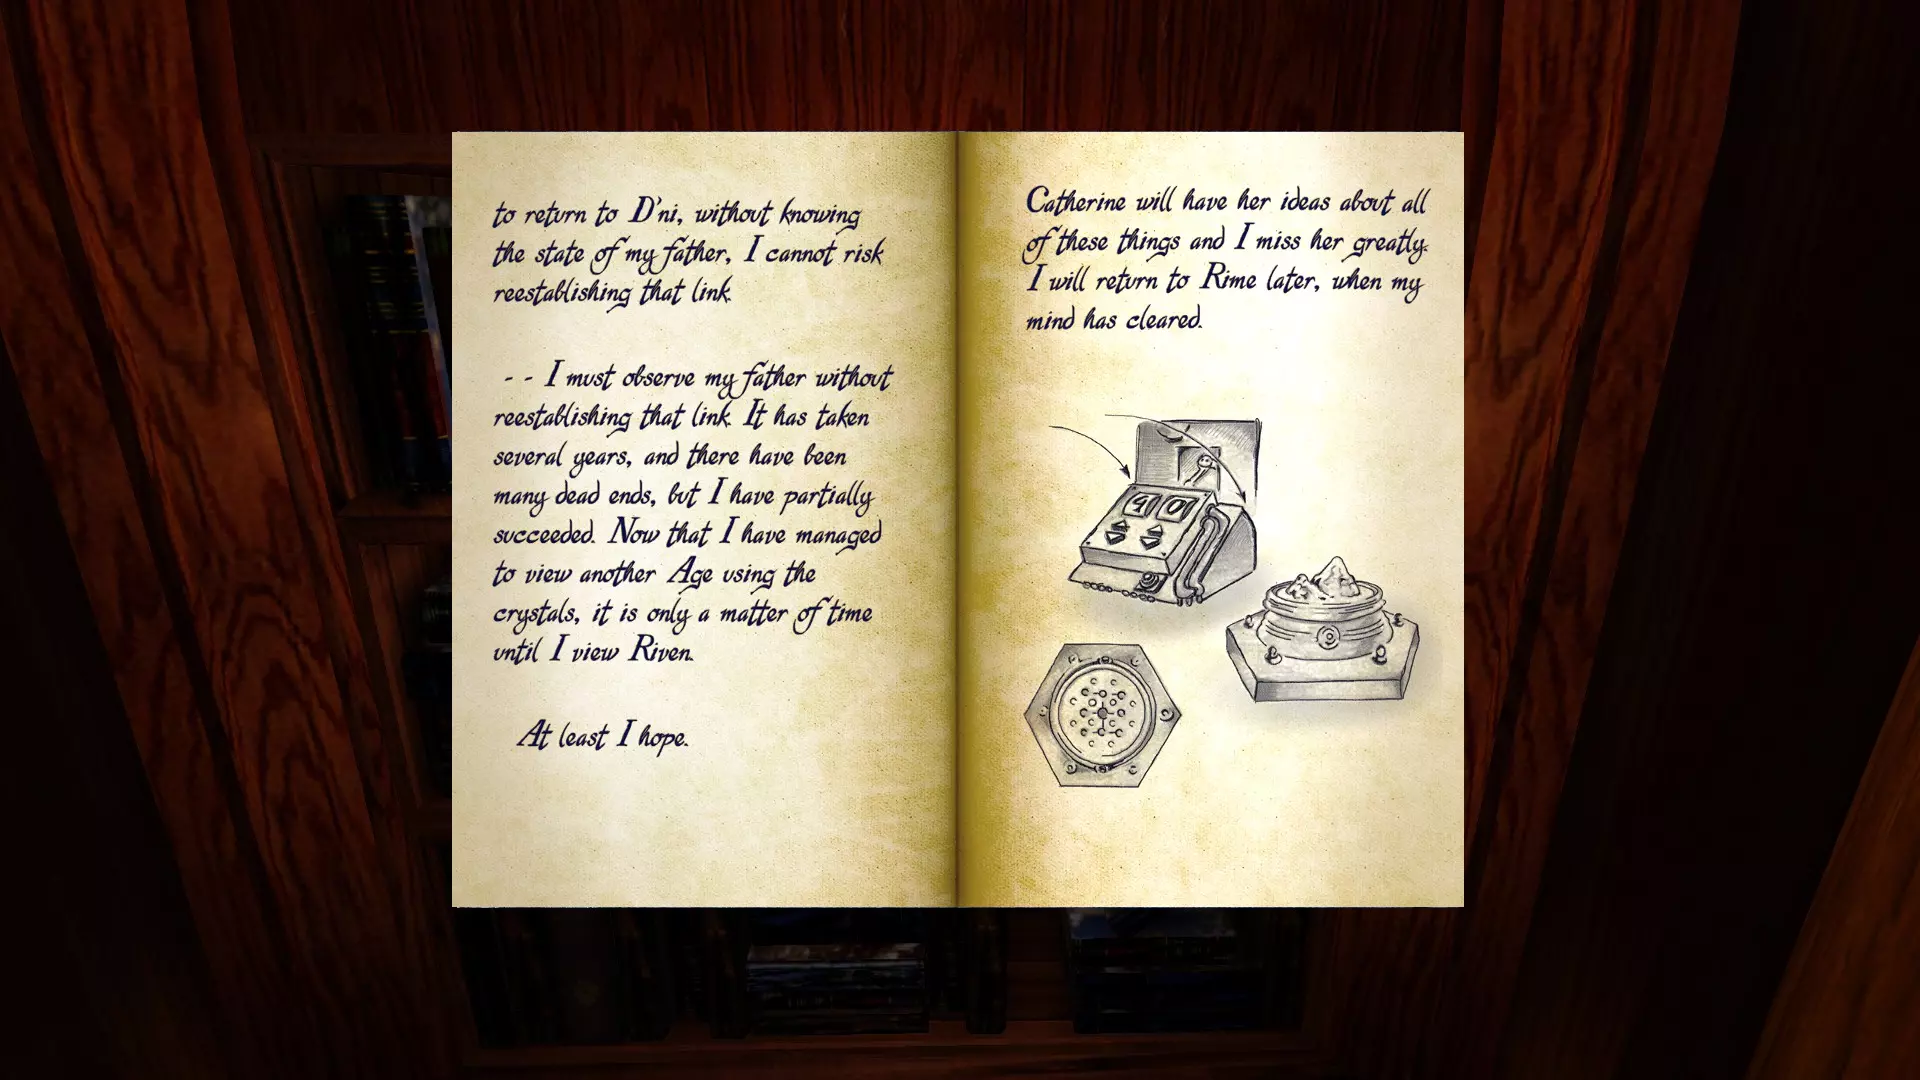 to return to D'ni, without knowing
the state of my father, I cannot risk
reestablishing that link.
-- I must observe my father without
reestablishing that link. It has taken
several years, and there have been
many dead ends, but I have partially
succeeded. Now that I have managed
to view another Age using the
crystals, it is only a matter of time
until I view Riven.
At least I hope.
Catherine will have her ideas about all
of these things and I miss her greatly.
I will return to Rime later, when my
mind has cleared.
40